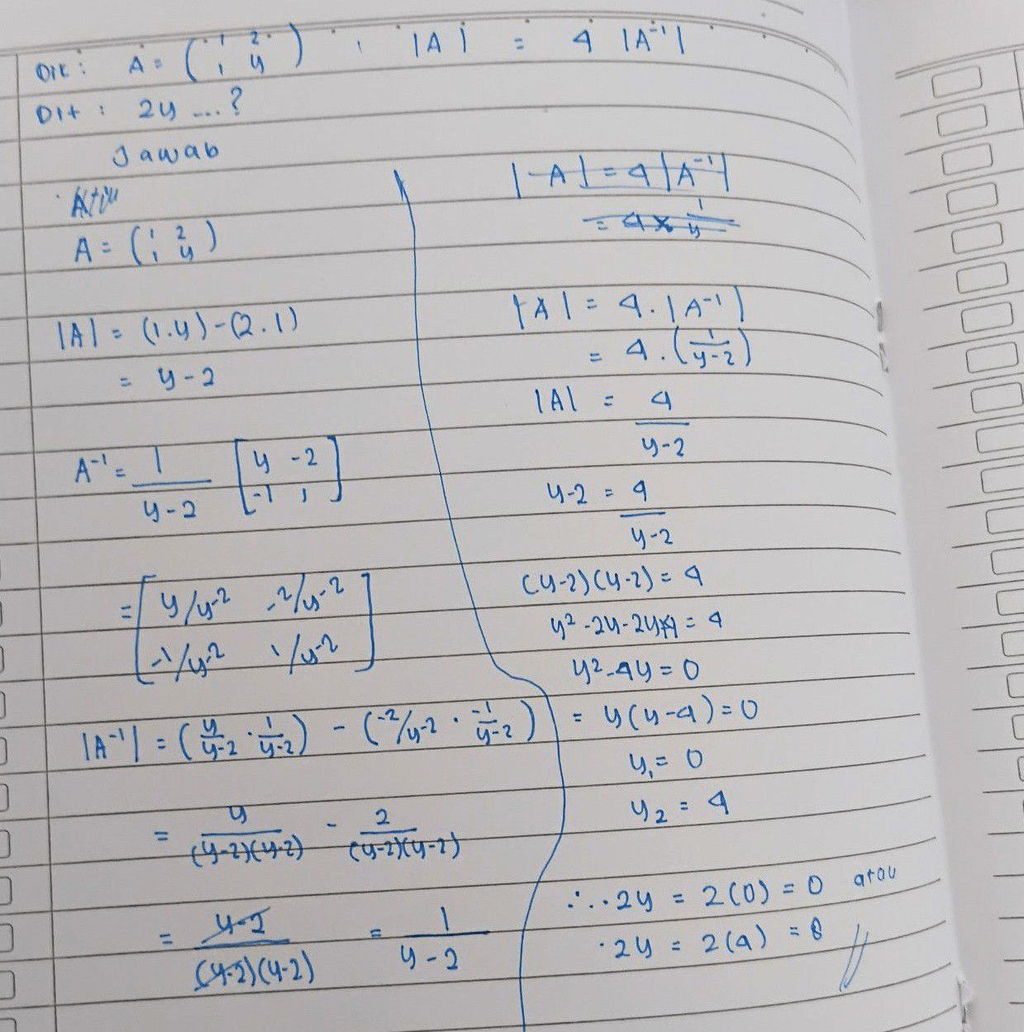 Dik : A = ( 1 2 1 y ) ; |A| = 4 |A⁻¹|
Dit : 2y ...?
Jawab
A = ( 1 2 1 y )
|A| = (1.y) - (2.1)
= y - 2
A⁻¹ = 1/y-2 [ y -2 -1 1 ]
= [ y/y-2 -2/y-2
-1/y-2 1/y-2 ]
|A⁻¹| = (y/y-2 · 1/y-2) - (-2/y-2 · -1/y-2)
= y/(y-2)(y-2) - 2/(y-2)(y-2)
= y-2/(y-2)(y-2) = 1/y-2
|A| = 4|A⁻¹|
= 4 x 1/y
|A| = 4 . |A⁻¹|
= 4 . (1/y-2)
|A| = 4/y-2
y-2 = 4/y-2
(y-2)(y-2) = 4
y² -2y-2y+4 = 4
y² -4y = 0
= y(y-4) = 0
y₁ = 0
y₂ = 4
∴ 2y = 2(0) = 0 atau
· 2y = 2(4) = 8